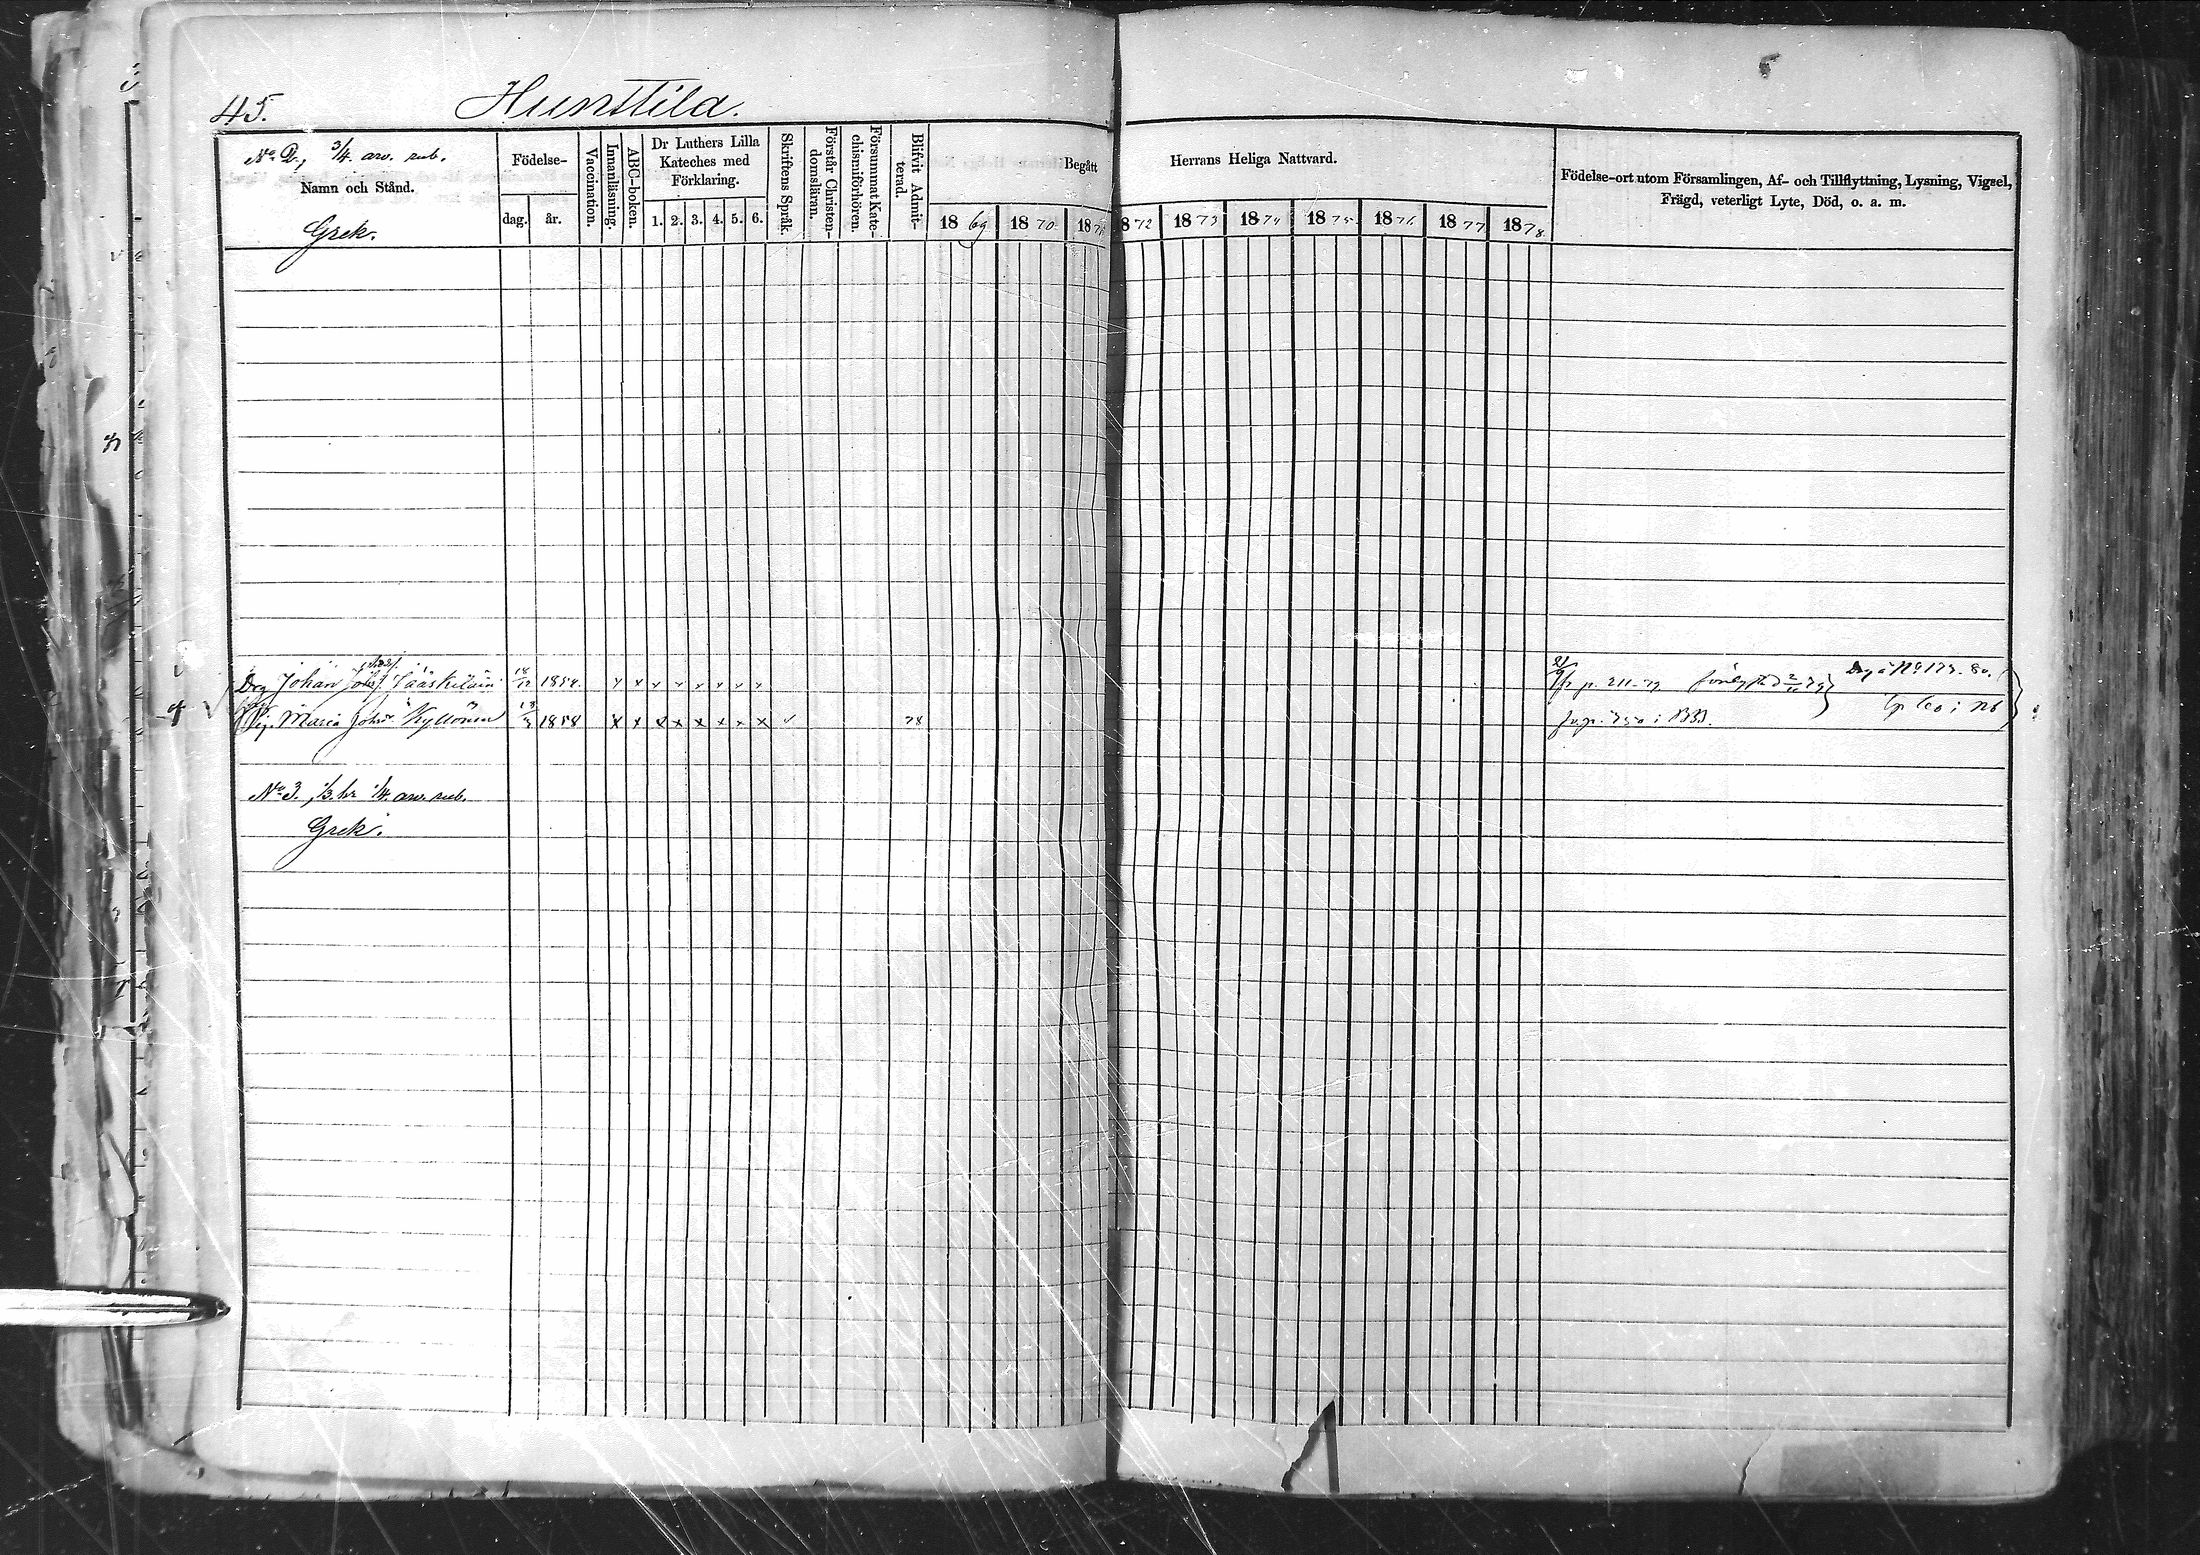 45. Hunttila.
No 2, 3/4. arv. rub.
Namn och Stånd.
Grek.
Födelse-
dag. år.
Vaccination.
Innanläsning.
ABC-boken.
Dr Luthers Lilla
Kateches med
Förklaring.
1. 2. 3. 4. 5. 6.
Skriftens Språk.
Förstår Christen-
domsläran.
Försummat Kate-
chismiförhören.
Blifvit Admit-
terad.
Begått Herrans Heliga Nattvard.
1869 1870 1871 1872 1873 1874 1875 1876 1877 1878.
Födelse-ort utom Församlingen, Af- och Tillflyttning, Lysning, Vigsel,
Frägd, veterligt Lyte, Död, o. a. m.
Drg Johan Johsf. Jääskeläin 14/12 1854. x x x x x x x x p. 211-79
Maria Johsdr Kyllönen 1858 x x x x x x x x 78 p. 750 i BB.
No 3, 1/3. hr 1/4. arv. rub.
Grek.